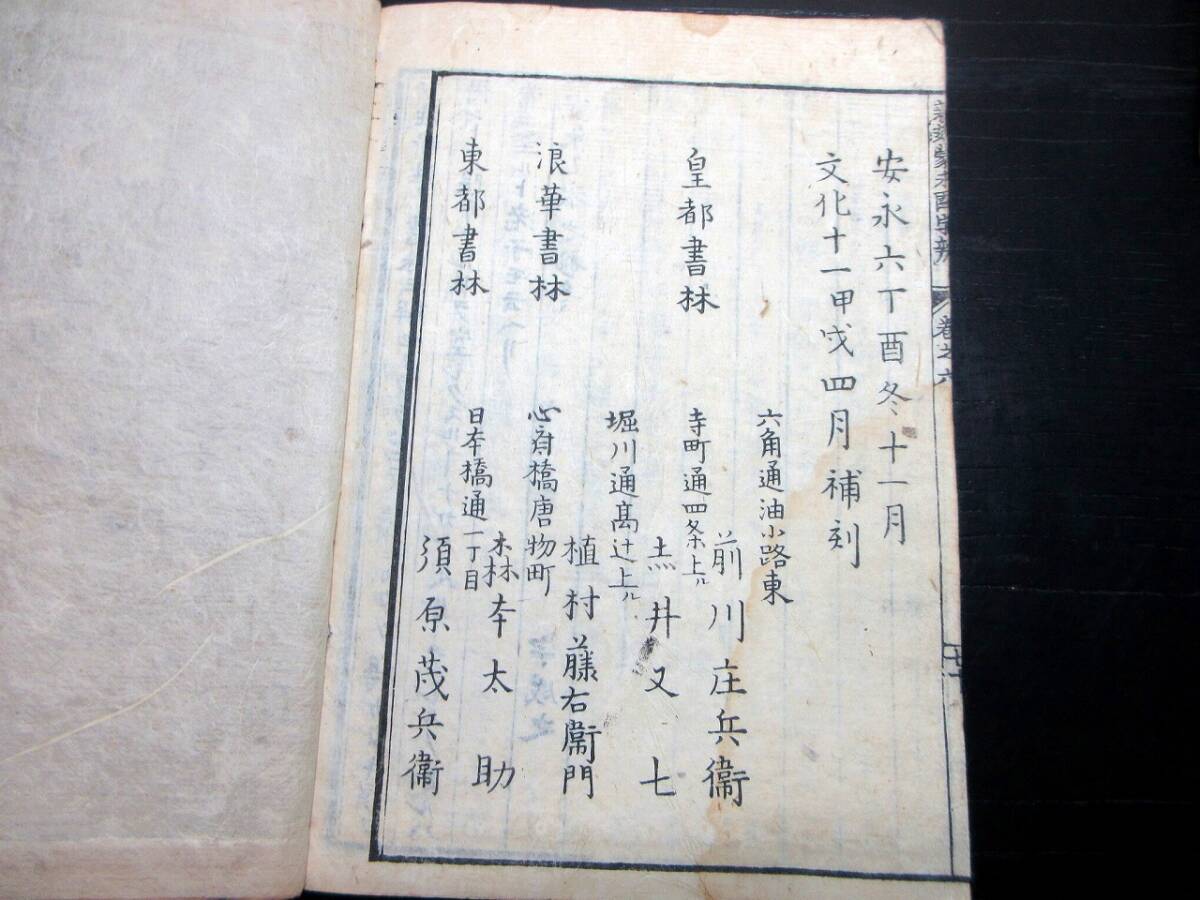 安永六丁酉冬十一月
文化十一甲戌四月補刻
六角通油小路東
皇都書林
前川庄兵衞
寺町通四条上ル
井又七
堀川通髙辻上ル
植村藤右衞門
浪華書林
心斎橋唐物町
森本太助
東都書林
日本橋通一丁目
須原茂兵衞
卷之六